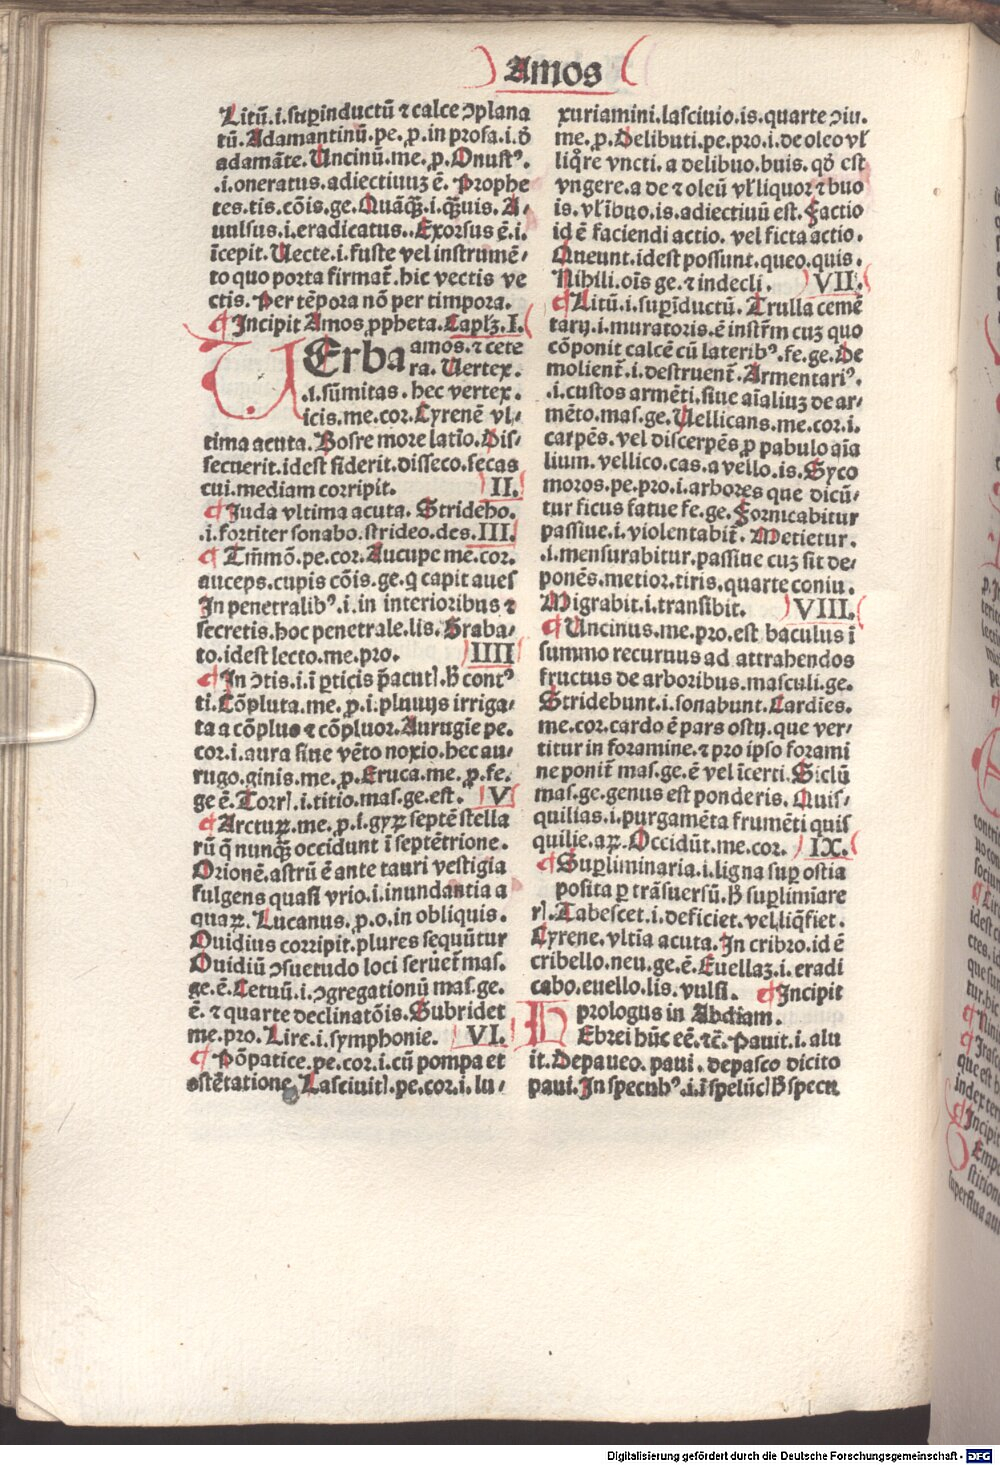 Amos
Litū.i.suꝑinductū ⁊ calce ↄplana
tū.Adamantinū.pe.ꝓ.in prosa.i.ð
adamāte.Uncinū.me.ꝓ.Onustꝰ.
.i.oneratus.adiectiuuꝫ ē.Prophe
tes.tis.cōis.ge.Quāqꝫ.i.qꝫuis.A⸗
uulsus.i.eradicatus..Exorsus ē.i.
īcepit.Uecte.i.fuste vel instrumē⸗
to quo porta firmat̄.hic vectis ve
ctis.Per tēpora nō per timpora.
¶Incipit Amos ꝓpheta.Caplꝫ.I.
UErba amos.⁊ cete
ra.Uertex.
.i.sūmitas.hec vertex.
icis.me.cor.Cyrenē vl⸗
tima acuta.Bosre more latīo.Dis⸗
secuerit.idest siderit.disseco.secas
cui.mediam corripit. II.
¶Juda vltima acuta.Strideho.
.i.fortiter sonabo.strideo.des.III.
¶Tm̄mō.pe.cor.Aucupe me.cor.
auceps.cupis cōis.ge.q capit aues
In penetralibꝰ.i.in interioribus ⁊
secretis.hoc penetrale.lis.Graba⸗
to.idest lecto.me.pro. IIII
¶In ↄtis.i.ī ꝑticis p̄acutꝭ.hͨ contꝰ
ti.Cōpluta.me.ꝓ.i.pluuijs irriga⸗
ta a cōpluo ⁊ cōpluor.Aurugīe pe.
cor.i.aura siue vēto noxio.hec au⸗
rugo.ginis.me.ꝓ.Eruca.me.ꝓ.fe.
ge ē.Torrꝭ.i.titio.mas.ge.est. V
¶Arcturꝫ.me.ꝓ.i.gyꝝ septē stella
rū q̄ nunqꝫ occidunt ī septētrione.
Orionē.astrū ē ante tauri vestigia
fulgens quasi vrio.i.inundantia a
quaꝝ.Lucanus.ꝓ.o.in obliquis.
Ouidius corripit.plures sequūtur
Ouidiū ↄsuetudo loci seruet̄ mas.
ge.ē.Cetuū.i.ↄgregationū mas.ge.
ē.⁊ quarte declinatōis.Subridet
me.pro.Lire.i.symphonie. VI.
¶Pōpatice.pe.cor.i.cū pompa et
ostētatione.Lasciuitꝭ.pe.cor.i.lu⸗
xuriamini.lasciuio.is.quarte ↄiu.
me.ꝓ.Delibuti.pe.pro.i.de oleo vł
liqͦre vncti.a delibuo.buis.qð est
vngere.a de ⁊ oleū vł liquor ⁊ buo
is.vł ībuo.is.adiectiuū est.Factio
id ē faciendi actio.vel ficta actio.
Queunt.idest possunt.queo.quis.
Nihili.oīs ge.⁊ indecli. VII.
¶Litū.i.suꝑīductū.Trulla cemē
tarij.i.muratoris.ē instr̄m cuꝫ quo
cōponit calcē cū lateribꝰ.fe.ge.De
molient̄.i.destruent̄.Armentariꝰ.
.i.custos armēti.siue aīaliuꝫ de ar⸗
mēto.mas.ge.Uellicans.me.cor.i.
carpēs.vel discerpēs ꝓ pabulo aīa
lium.vellico.cas.a vello.is.Syco
moros.pe.pro.i.arbores que dicū⸗
tur ficus fatue fe.ge.Fornicabitur
passiue.i.violentabit̄.Metietur.
.i.mensurabitur.passiue cuꝫ sit de⸗
ponēs.metior.tiris.quarte coniu.
Migrabit.i.transibit. VIII.
¶Uncinus.me.pro.est baculus ī
summo recuruus ad attrahendos
fructus de arboribus.masculi.ge.
Stridebunt.i.sonabunt.Cardies.
me.cor.cardo ē pars ostij.que ver⸗
titur in foramine.⁊ pro ipso forami
ne ponit̄ mas.ge.ē vel īcerti.Siclū
mas.ge.genus est ponderis.Quis⸗
quilias.i.purgamēta frumēti quis
quilie.aꝝ.Occidūt.me.cor. IX.
¶Suꝑliminaria.i.ligna suꝑ ostia
posita ꝑ trāsuersū.hͨ suꝑlimiare
rꝭ.Tabescet.i.deficiet.vel.liq̄fiet.
Cyrene.vltīa acuta.In cribro.id ē
cribello.neu.ge.ē.Euellaꝫ.i.eradi
cabo.euello.lis.vulsi. ¶Incipit
prologus in Abdiam.
HEbrei hūc eē.⁊c̄.Pauit.i.alu
it.Depaueo.paui.depasco dicito
paui.In specubꝰ.i.ī spelūcꝭ hͨ specu
Digitalisierung gefördert durch die Deutsche Forschungsgemeinschaft - DFG